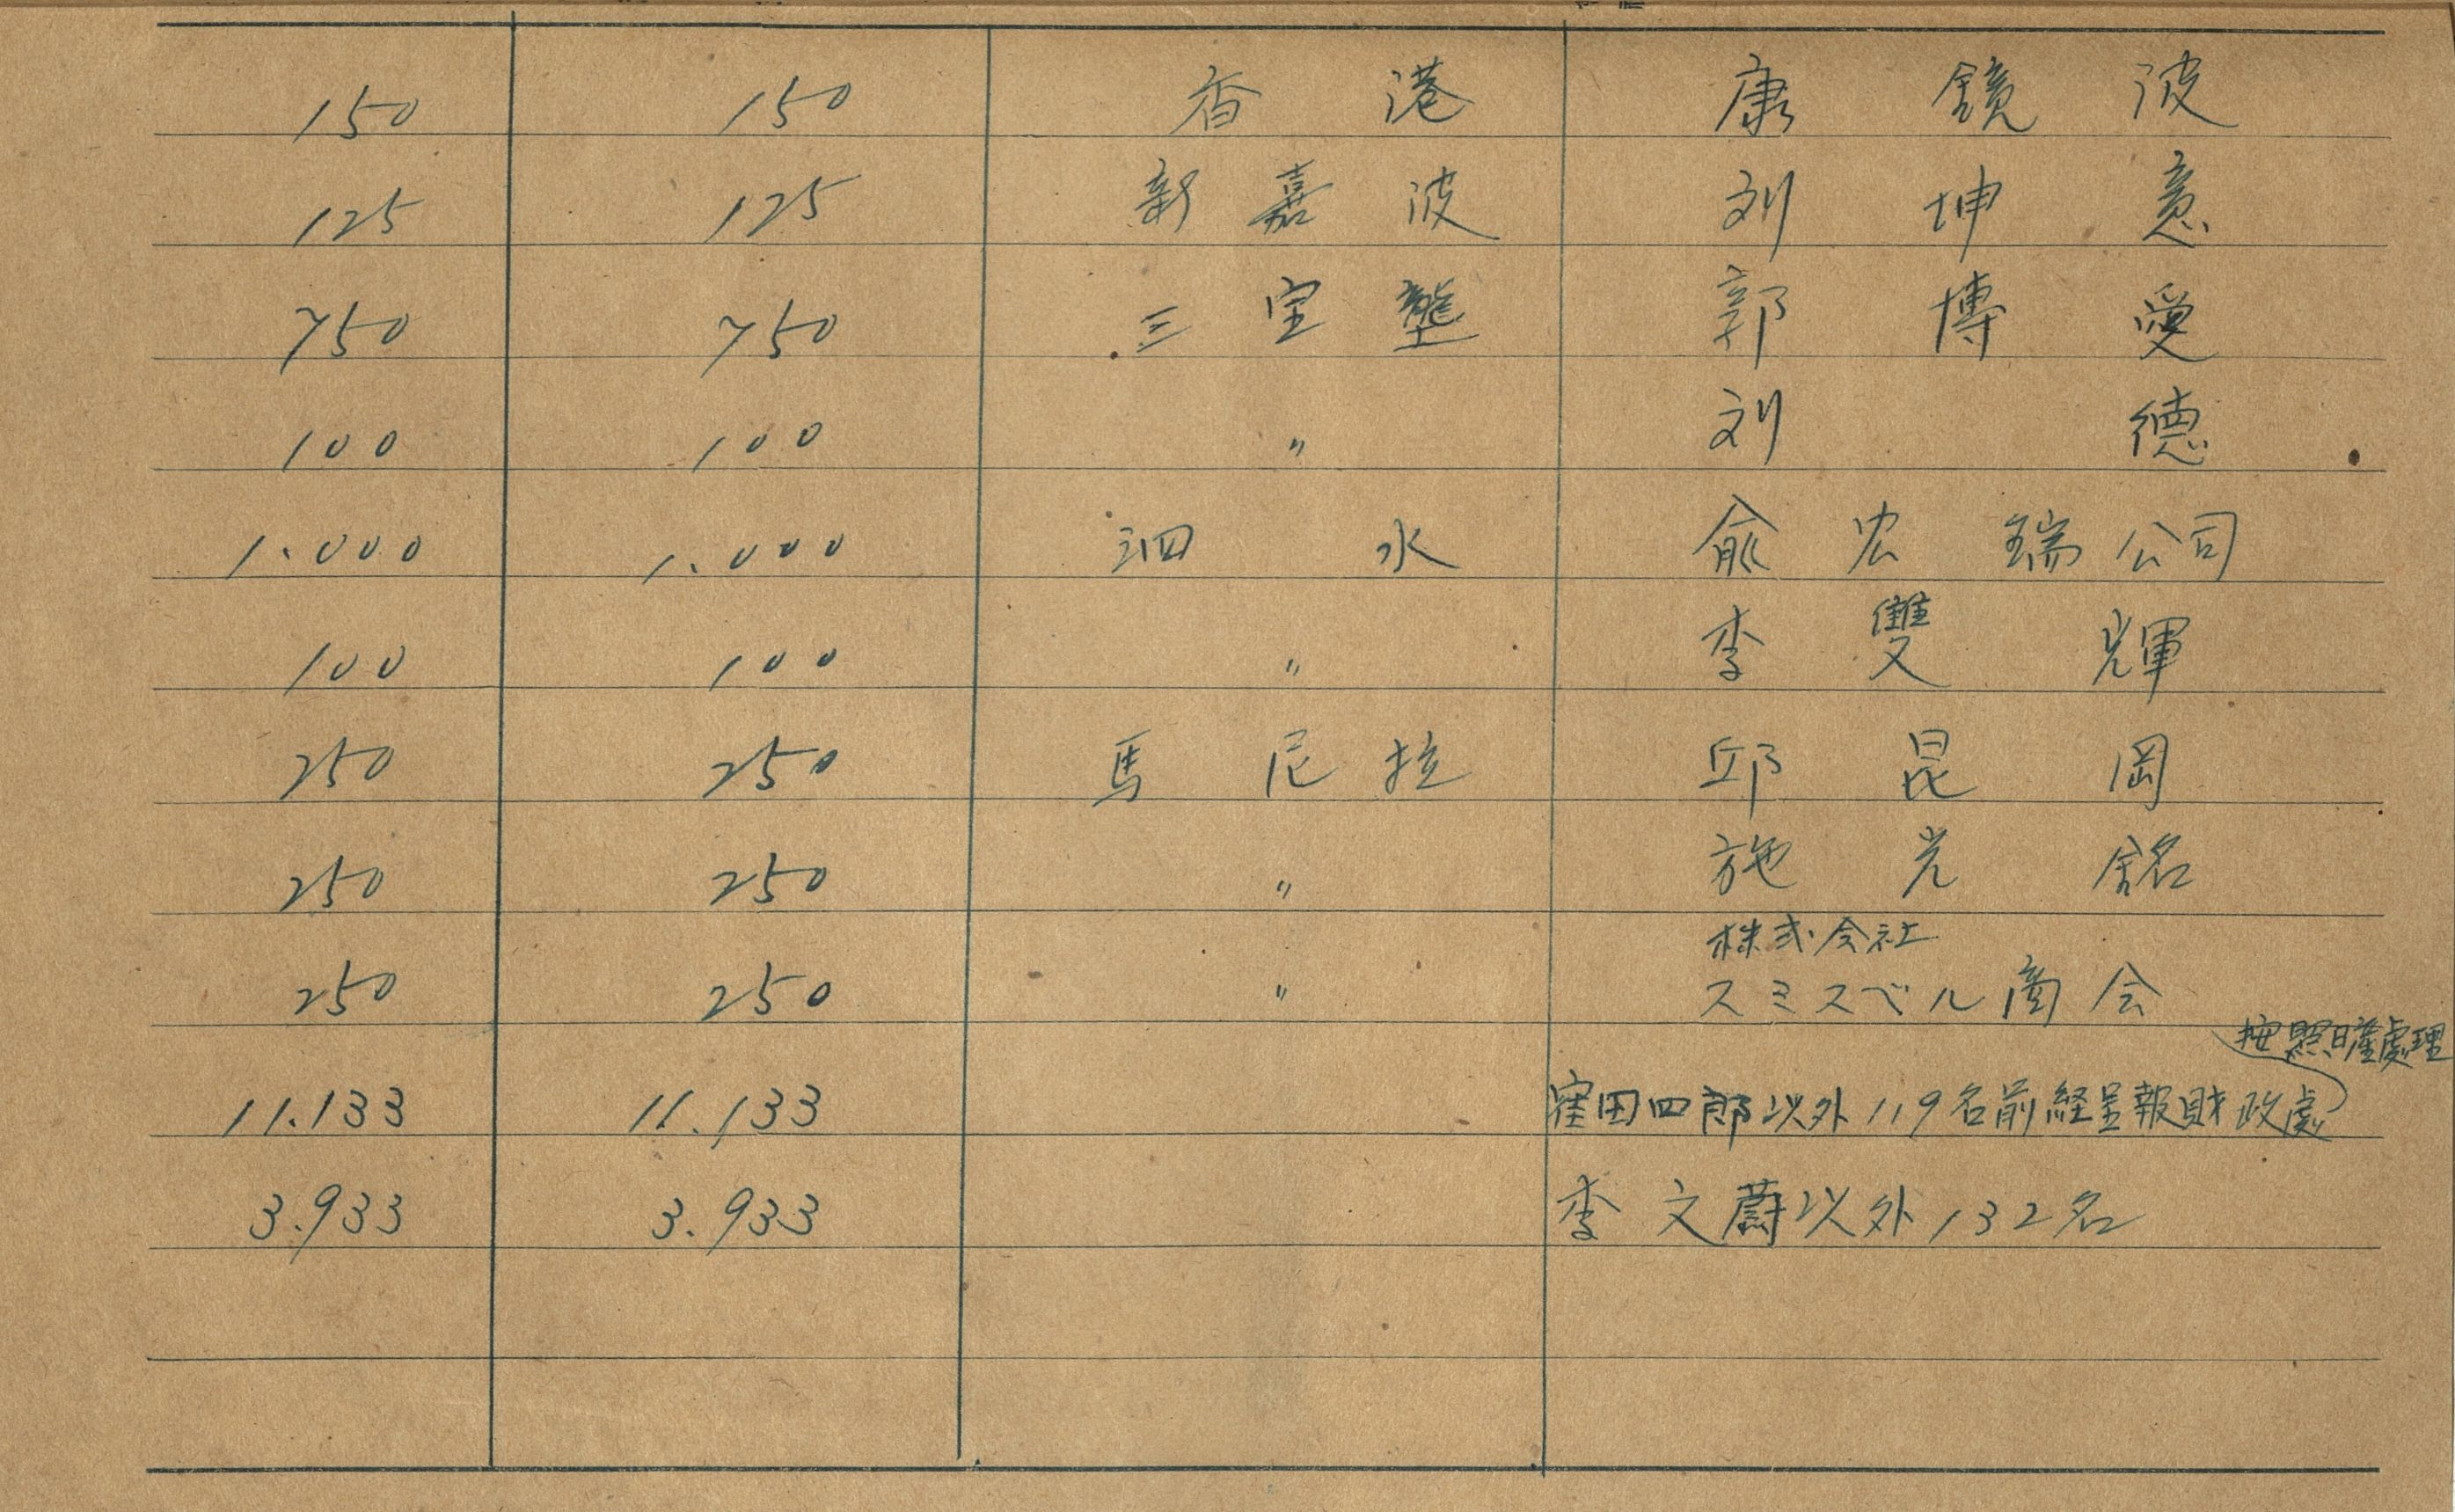 150 150 香港 康鏡波
125 125 新嘉波 刘坤意
750 750 三宝壟 郭博愛
100 100 〃 刘德
1.000 1.000 泗水 俞宏瑞公司
100 100 〃 李雙輝
250 250 馬尼拉 邱昆岡
250 250 〃 施光銘
株式会社
250 250 〃 スミスベル商会
按照日産處理
11.133 11.133 窪田四郎以外119名前経呈報財政處
3.933 3.933 李文蔚以外132名